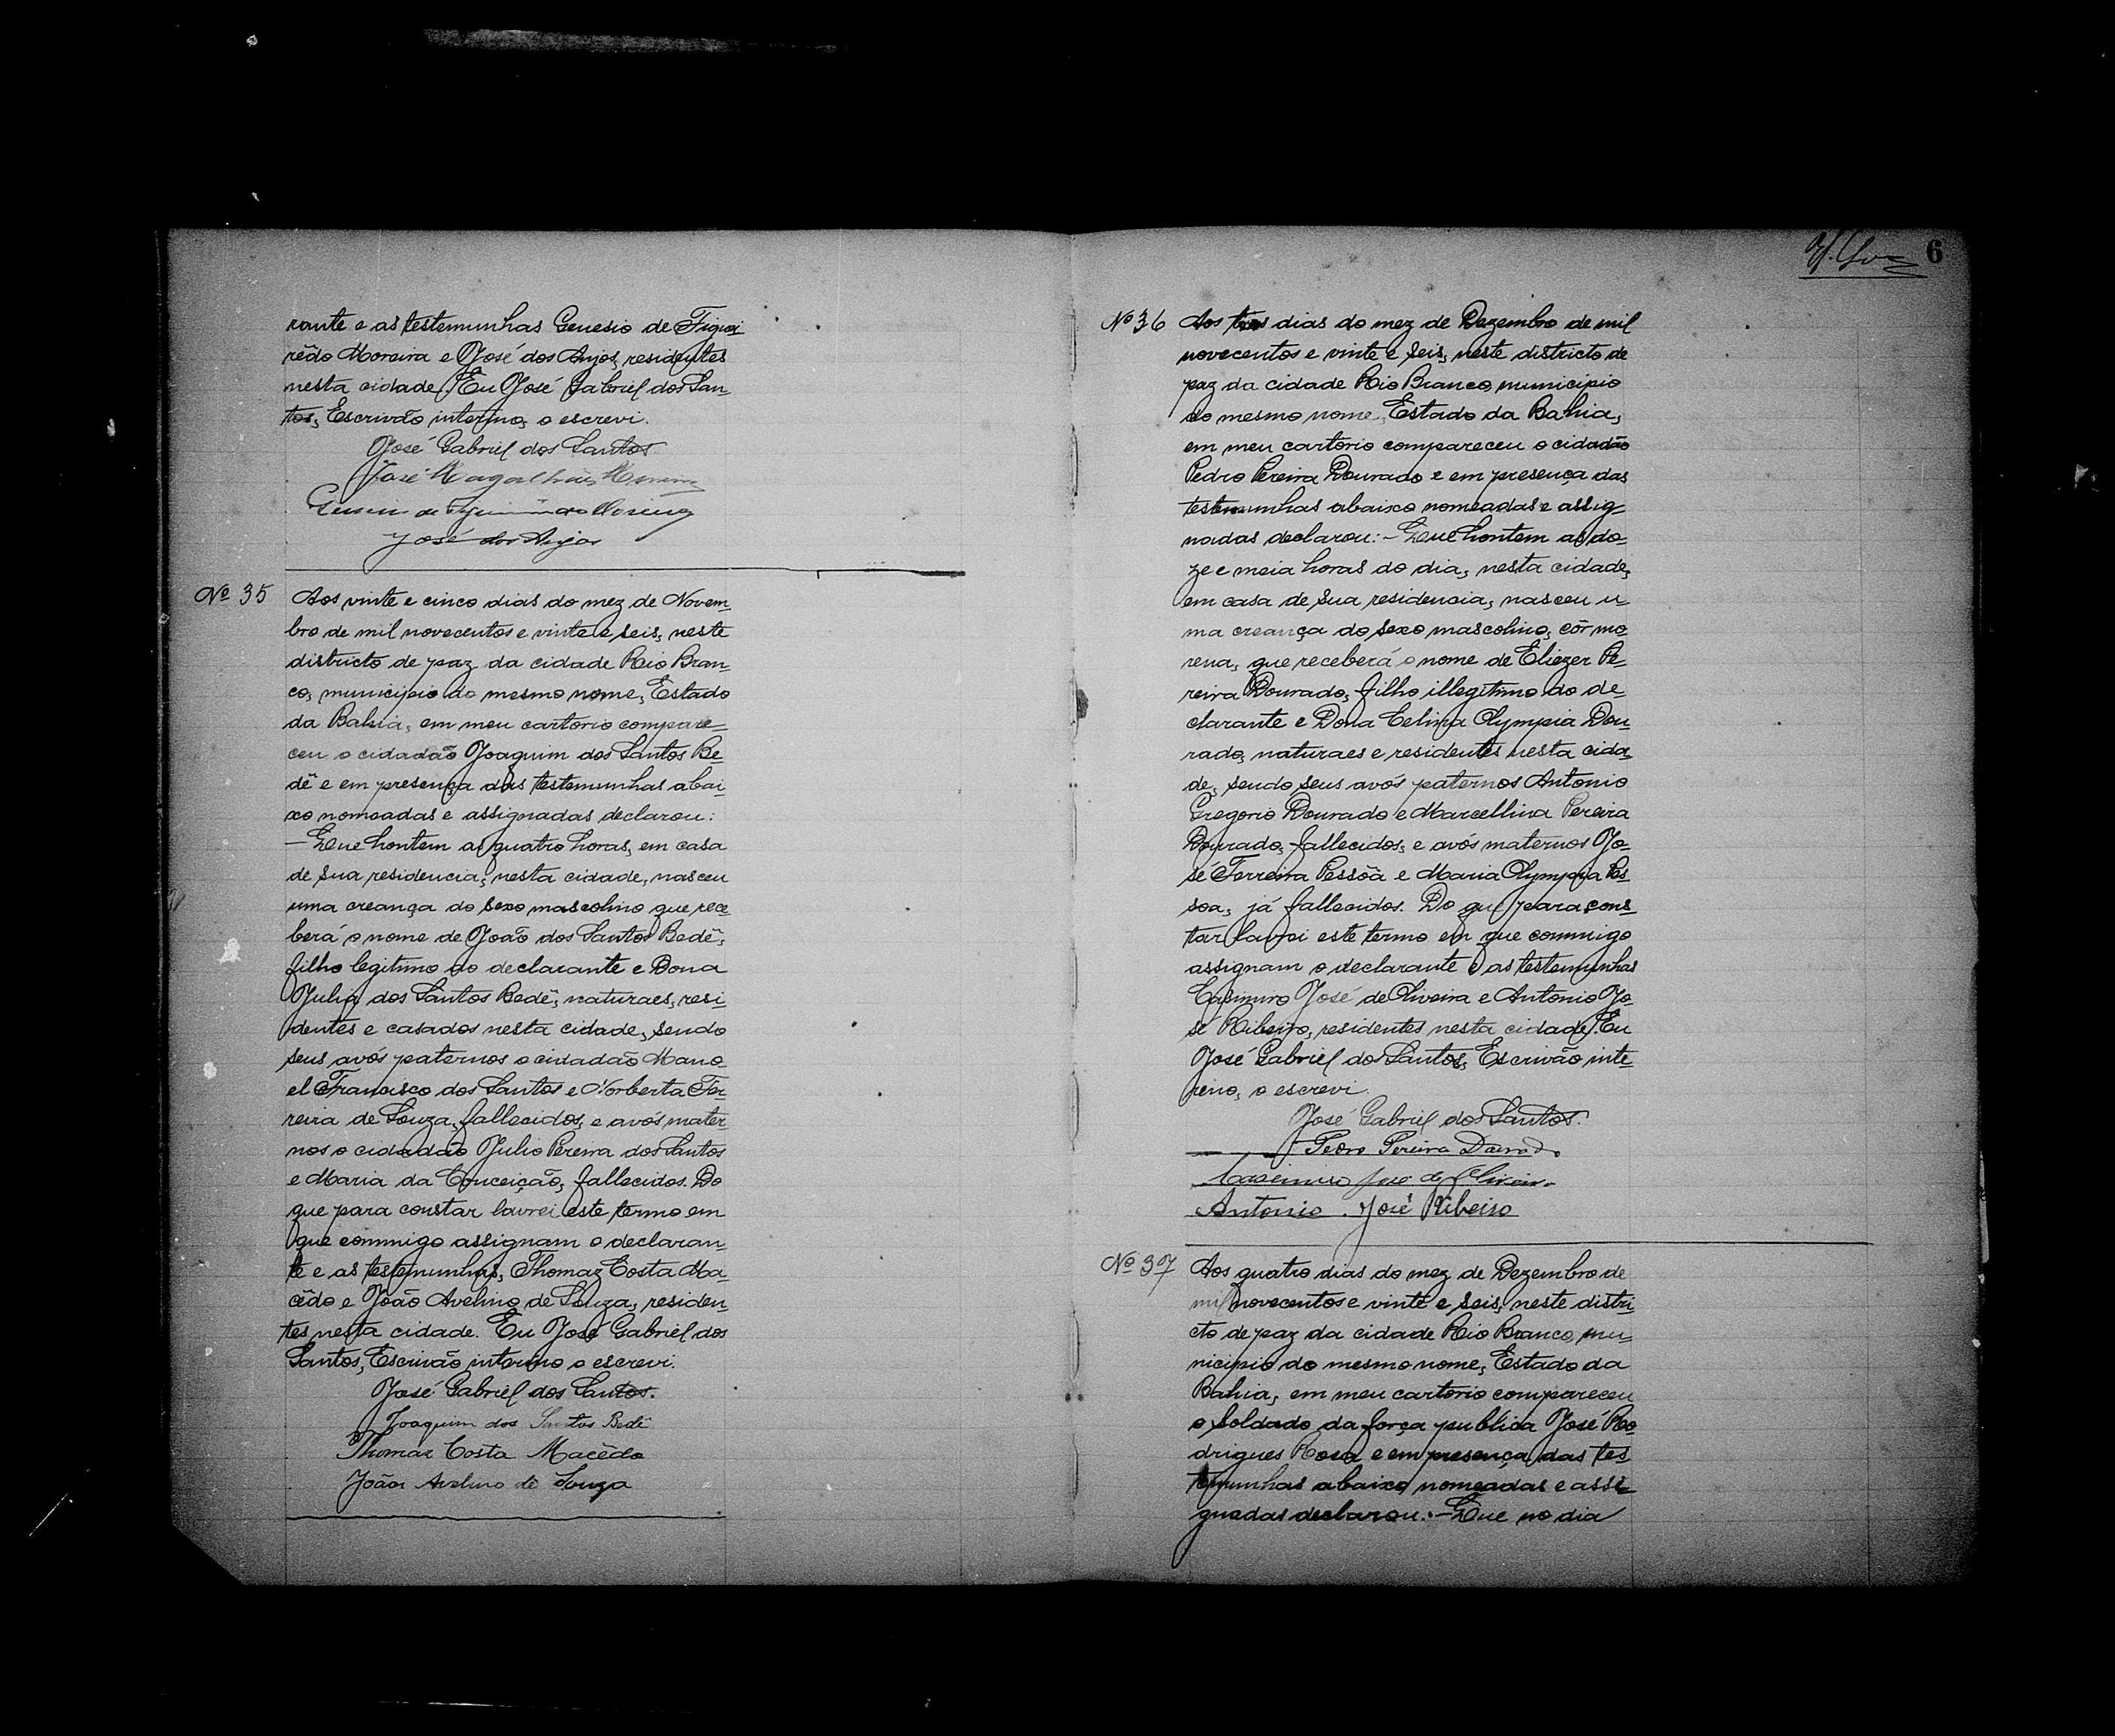 rante e as testemunhas Genesio de Figuei
rêdo Moreira e José dos Anjos, residentes
nesta cidade. Eu José Gabriel dos San-
tos, Escrivão interino, o escrevi.
José Gabriel dos Santos.
José Magalhães
José dos Anjos
Nº 35
Aos vinte e cinco dias do mez de Novem-
bro de mil novecentos e vinte e seis, neste
districto de paz da cidade Rio Bran-
co, municipio do mesmo nome, Estado
da Bahia, em meu cartorio compare-
ceu o cidadão Joaquim dos Santos Be-
dê e em presença das testemunhas abai-
xo nomeadas e assignadas declarou:
— Que hontem as quatro horas, em casa
de sua residencia, nesta cidade, nasceu
uma creança do sexo mascolino que rece-
berá o nome de João dos Santos Bedê,
filho legitimo do declarante e Dona
Julia dos Santos Bedê, naturaes, resi-
dentes e casados nesta cidade, sendo
seus avós paternos o cidadão Mano-
el Francisco dos Santos e Norberta Fer-
reira de Souza, fallecidos, e avós mater-
nos o cidadão Julio Pereira dos Santos
e Maria da Conceição, fallecidos. Do
que para constar lavrei este termo em
que commigo assignam o declaran-
te e as testemunhas, Thomaz Costa Ma-
cêdo e João Avelino de Souza, residen-
tes nesta cidade. Eu José Gabriel dos
Santos, Escrivão interino o escrevi.
José Gabriel dos Santos.
Joaquim dos Santos Bedê
Thomaz Costa Macêdo
João Avelino de Souza
6
Nº 36
Aos tres dias do mez de Dezembro de mil
novecentos e vinte e seis, neste districto de
paz da cidade Rio Branco, municipio
do mesmo nome, Estado da Bahia,
em meu cartorio compareceu o cidadão
Pedro Pereira Dourado e em presença das
testemunhas abaixo nomeadas e assig-
nadas declarou: - Que hontem as do-
ze e meia horas do dia, nesta cidade,
em casa de sua residencia, nasceu u-
ma creança do sexo mascolino, côr mo-
rena, que receberá o nome de Eliezer Pe-
reira Dourado, filho illegitimo do de-
clarante e Dona Celina Olympia Dou-
rado, naturaes e residentes nesta cida-
de, sendo seus avós paternos Antonio
Gregorio Dourado e Marcellina Pereira
Dourado, fallecidos, e avós maternos Jo-
sé Ferreira Pessôa e Maria Olympia Pes-
soa, já fallecidos. Do que para cons-
tar lavrei este termo em que commigo
assignam o declarante e as testemunhas
Casimiro José de Oliveira e Antonio Jo-
sé Ribeiro, residentes nesta cidade. Eu
José Gabriel dos Santos, Escrivão inte-
rino, o escrevi.
José Gabriel dos Santos.
Pedro Pereira Dourado
Casimiro José de Oliveira
Antonio José Ribeiro
Nº 37
Aos quatro dias do mez de Dezembro de
mil novecentos e vinte e seis, neste distri-
cto de paz da cidade Rio Branco, mu-
nicipio do mesmo nome, Estado da
Bahia, em meu cartorio compareceu
o soldado da força publica José Ro-
drigues Rosa e em presença das tes-
temunhas abaixo nomeadas e assi-
gnadas declarou: - Que no dia